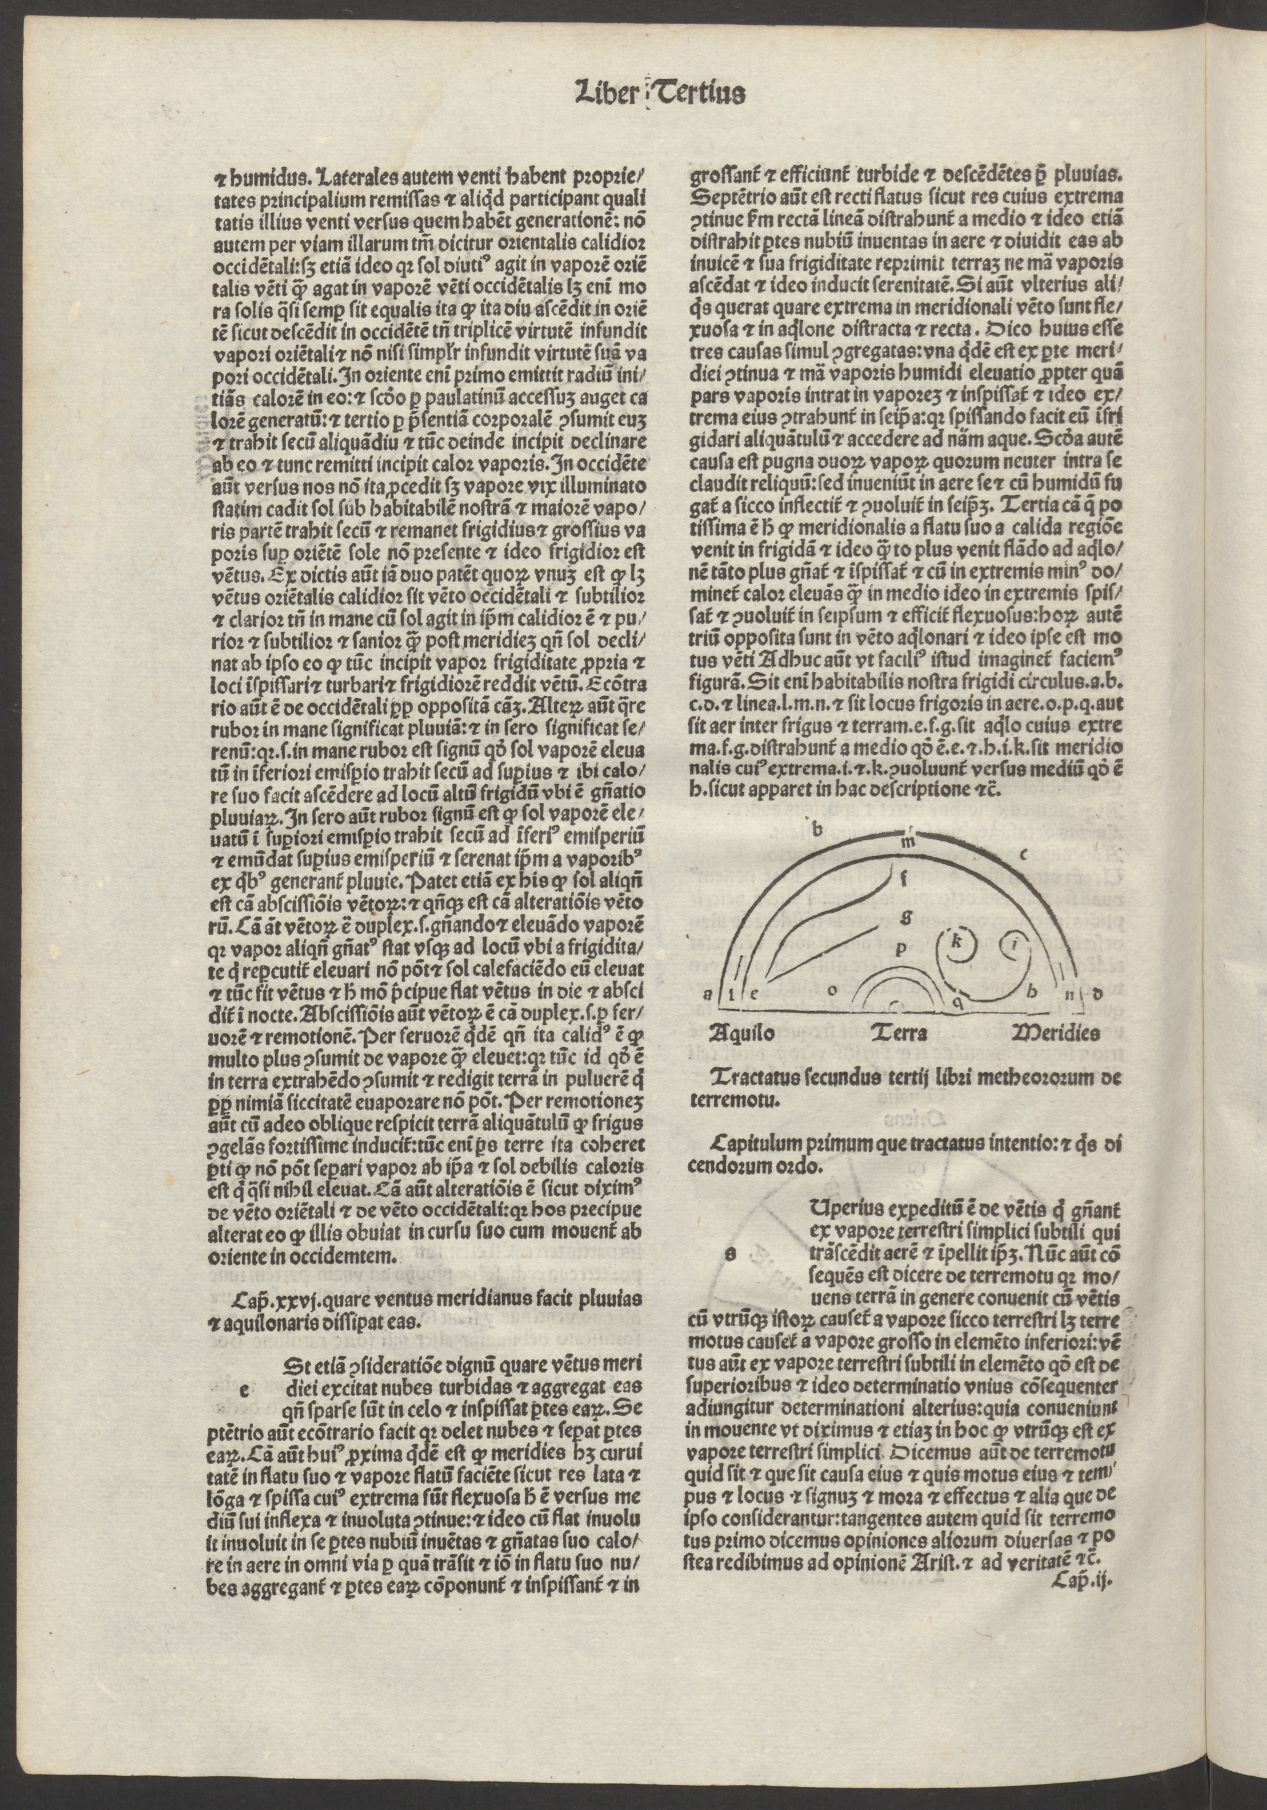 Liber Tertius
⁊ humidus. Laterales autem venti habent proprie/
tates principalium remissas ⁊ aliqd participant quali
tatis illius venti versus quem habēt generationē: nō
autem per viam illarum tm̄ dicitur orientalis calidior
occidētali: sꝫ etiā ideo qꝛ sol diutiꝰ agit in vaporē oriē
talis vēti q̄ȝ agat in vaporē vēti occidētalis lꝫ eni mo
ra solis q̄si semꝑ sit equalis ita ꝙ ita diu ascēdit in oriē
tē sicut descēdit in occidētē tn̄ triplicē virtutē infundit
vapori oriētali ⁊ nō nisi simplr̄ infundit virtutē suā va
pori occidētali. In oriente eni primo emittit radiū ini/
tiās calorē in eo: ⁊ scdo ꝑ paulatinū accessuꝫ auget ca
lorē generatū: ⁊ tertio ꝑ p̄sentiā corporalē ꝯsumit euꝫ
⁊ trahit secū aliquādiu ⁊ tūc deinde incipit declinare
ab eo ⁊ tunc remitti incipit calor vaporis. In occidēte
aūt versus nos nō ita ꝓcedit sꝫ vapore vix illuminato
statim cadit sol sub habitabilē nostrā ⁊ maiorē vapo/
ris partē trahit secū ⁊ remanet frigidius ⁊ grossius va
poris suꝑ oriētē sole nō presente ⁊ ideo frigidior est
vētus. Ex dictis aūt iā duo patēt quoꝝ vnuꝫ est ꝙ lꝫ
vētus oriētalis calidior sit vēto occidētali ⁊ subtilior
⁊ clarior tn̄ in mane cū sol agit in ip̄m calidior ē ⁊ pu/
rior ⁊ subtilior ⁊ sanior q̄ȝ post meridieꝫ qn̄ sol decli/
nat ab ipso eo ꝙ tūc incipit vapor frigiditate ꝓpria ⁊
loci īspissari ⁊ turbari ⁊ frigidiorē reddit vētū. Ecōtra
rio aūt ē de occidētali ꝓp̄ oppositā cāꝫ. Alteꝝ aūt q̄re
rubor in mane significat pluuiā: ⁊ in sero significat se/
renū: qꝛ .s. in mane rubor est signū qd̄ sol vaporē eleua
tū in īferiori emisꝑio trahit secū ad suꝑius ⁊ ibi calo/
re suo facit ascēdere ad locū altū frigidū vbi ē gn̄atio
pluuiaꝝ. In sero aūt rubor signū est ꝙ sol vaporē ele/
uatū ī suꝑiori emisꝑio trahit secū ad īferiꝰ emisperiū
⁊ emūdat suꝑius emisperiū ⁊ serenat ip̄m a vaporibꝰ
ex q̄bꝰ generant̄ pluuie. Patet etiā ex his ꝙ sol aliqn̄
est cā abscissiōis vētoꝝ: ⁊ qn̄qꝫ est cā alteratiōis vēto
rū. Cā āt vētoꝝ ē duplex .s. gn̄ando ⁊ eleuādo vaporē
qꝛ vapor aliqn̄ gn̄atꝰ stat vsqꝫ ad locū vbi a frigidita/
te q̄ reꝑcutit̄ eleuari nō pōt ⁊ sol calefaciēdo eū eleuat
⁊ tūc fit vētus ⁊ h̄ mō p̄cipue flat vētus in die ⁊ absci
dit̄ ī nocte. Abscissiōis aūt vētoꝝ ē cā duplex .s. ꝑ fer/
uorē ⁊ remotionē. Per feruorē q̄dē qn̄ ita calidꝰ ē ꝙ
multo plus ꝯsumit de vapore q̄ȝ eleuet: qꝛ tūc id qd̄ ē
in terra extrahēdo ꝯsumit ⁊ redigit terrā in puluerē q̄
ꝓp̄ nimiā siccitatē euaporare nō pōt. Per remotioneꝫ
aūt cū adeo oblique respicit terrā aliquātulū ꝙ frigus
ꝯgelās fortissime inducit̄: tūc eni ꝑs terre ita coheret
ꝑti ꝙ nō pōt seꝑari vapor ab ip̄a ⁊ sol debilis caloris
est q̄ q̄si nihil eleuat. Cā aūt alteratiōis ē sicut diximꝰ
de vēto oriētali ⁊ de vēto occidētali: qꝛ hos precipue
alterat eo ꝙ illis obuiat in cursu suo cum mouent̄ ab
oriente in occidemtem.
Cap̄. xxvj. quare ventus meridianus facit pluuias
⁊ aquilonaris dissipat eas.
e
St etiā ꝯsideratiōe dignū quare vētus meri
diei excitat nubes turbidas ⁊ aggregat eas
qn̄ sparse sūt in celo ⁊ inspissat ꝑtes eaꝝ. Se
ptētrio aūt ecōtrario facit qꝛ delet nubes ⁊ seꝑat ꝑtes
eaꝝ. Cā aūt huiꝰ ꝓxima q̄dē est ꝙ meridies hꝫ curui
tatē in flatu suo ⁊ vapore flatū faciēte sicut res lata ⁊
lōga ⁊ spissa cuiꝰ extrema sūt flexuosa h̄ ē versus me
diū sui inflexa ⁊ inuoluta ꝯtinue: ⁊ ideo cū flat inuolu
it inuoluit in se ꝑtes nubiū inuētas ⁊ gn̄atas suo calo/
re in aere in omni via ꝑ quā trāsit ⁊ iō in flatu suo nu/
bes aggregant̄ ⁊ ꝑtes eaꝝ cōponunt̄ ⁊ inspissant̄ ⁊ in
grossant̄ ⁊ efficiunt̄ turbide ⁊ descēdētes ꝑ pluuias.
Septētrio aūt est recti flatus sicut res cuius extrema
ꝯtinue ẜm rectā lineā distrahunt̄ a medio ⁊ ideo etiā
distrahit ꝑtes nubiū inuentas in aere ⁊ diuidit eas ab
inuicē ⁊ sua frigiditate reprimit terraꝫ ne mā vaporis
ascēdat ⁊ ideo inducit serenitatē. Si aūt vlterius ali/
q̄s querat quare extrema in meridionali vēto sunt fle/
xuosa ⁊ in aq̄lone distracta ⁊ recta. Dico huius esse
tres causas simul ꝯgregatas: vna q̄dē est ex ꝑte meri/
diei ꝯtinua ⁊ mā vaporis humidi eleuatio ꝓpter quā
pars vaporis intrat in vaporeꝫ ⁊ inspissat̄ ⁊ ideo ex/
trema eius ꝯtrahunt̄ in seip̄a: qꝛ spissando facit eū īfri
gidari aliquātulū ⁊ accedere ad nām aque. Scda autē
causa est pugna duoꝝ vapoꝝ quorum neuter intra se
claudit reliquū: sed inueniūt in aere se ⁊ cū humidū fu
gat̄ a sicco inflectit̄ ⁊ ꝯuoluit̄ in seip̄ꝫ. Tertia cā q̄ po
tissima ē h̄ ꝙ meridionalis a flatu suo a calida regiōe
venit in frigidā ⁊ ideo q̄ȝto plus venit flādo ad aq̄lo/
nē tāto plus gn̄at̄ ⁊ īspissat̄ ⁊ cū in extremis minꝰ do/
minet̄ calor eleuās q̄ȝ in medio ideo in extremis spis/
sat̄ ⁊ ꝯuoluit̄ in seipsum ⁊ efficit̄ flexuosus: hoꝝ autē
triū opposita sunt in vēto aq̄lonari ⁊ ideo ipse est mo
tus vēti Adhuc aūt vt faciliꝰ istud imaginet̄ faciemꝰ
figurā. Sit eni habitabilis nostra frigidi circulus .a.b.
c.d. ⁊ linea .l.m.n. ⁊ sit locus frigoris in aere .o.p.q. aut
sit aer inter frigus ⁊ terram .e.f.g. sit aq̄lo cuius extre
ma .f.g. distrahunt̄ a medio qd̄ ē .e. ⁊ .h.i.k. sit meridio
nalis cuiꝰ extrema .i. ⁊ .k. ꝯuoluunt̄ versus mediū qd̄ ē
h. sicut apparet in hac descriptione ⁊c̄.
b
m
c
f
g
k
i
p
a
l
e
o
q
h
n
d
Aquilo Terra Meridies
Tractatus secundus tertij libri metheororum de
terremotu.
Capitulum primum que tractatus intentio: ⁊ q̄s di
cendorum ordo.
s
Uperius expeditū ē de vētis q̄ gn̄ant̄
ex vapore terrestri simplici subtili qui
trāscēdit aerē ⁊ īpellit ip̄ꝫ. Nūc aūt cō
sequēs est dicere de terremotu qꝛ mo/
uens terrā in genere conuenit cū vētis
cū vtrūqꝫ istoꝝ causet̄ a vapore sicco terrestri lꝫ terre
motus causet̄ a vapore grosso in elemēto inferiori: vē
tus aūt ex vapore terrestri subtili in elemēto qd̄ est de
superioribus ⁊ ideo determinatio vnius cōsequenter
adiungitur determinationi alterius: quia conueniunt
in mouente vt diximus ⁊ etiaꝫ in hoc ꝙ vtrūqꝫ est ex
vapore terrestri simplici. Dicemus aūt de terremotu
quid sit ⁊ que sit causa eius ⁊ quis motus eius ⁊ tem/
pus ⁊ locus ⁊ signuꝫ ⁊ mora ⁊ effectus ⁊ alia que de
ipso considerantur: tangentes autem quid sit terremo
tus primo dicemus opiniones aliorum diuersas ⁊ po
stea redibimus ad opinionē Arist. ⁊ ad veritatē ⁊c̄.
Cap̄. ij.